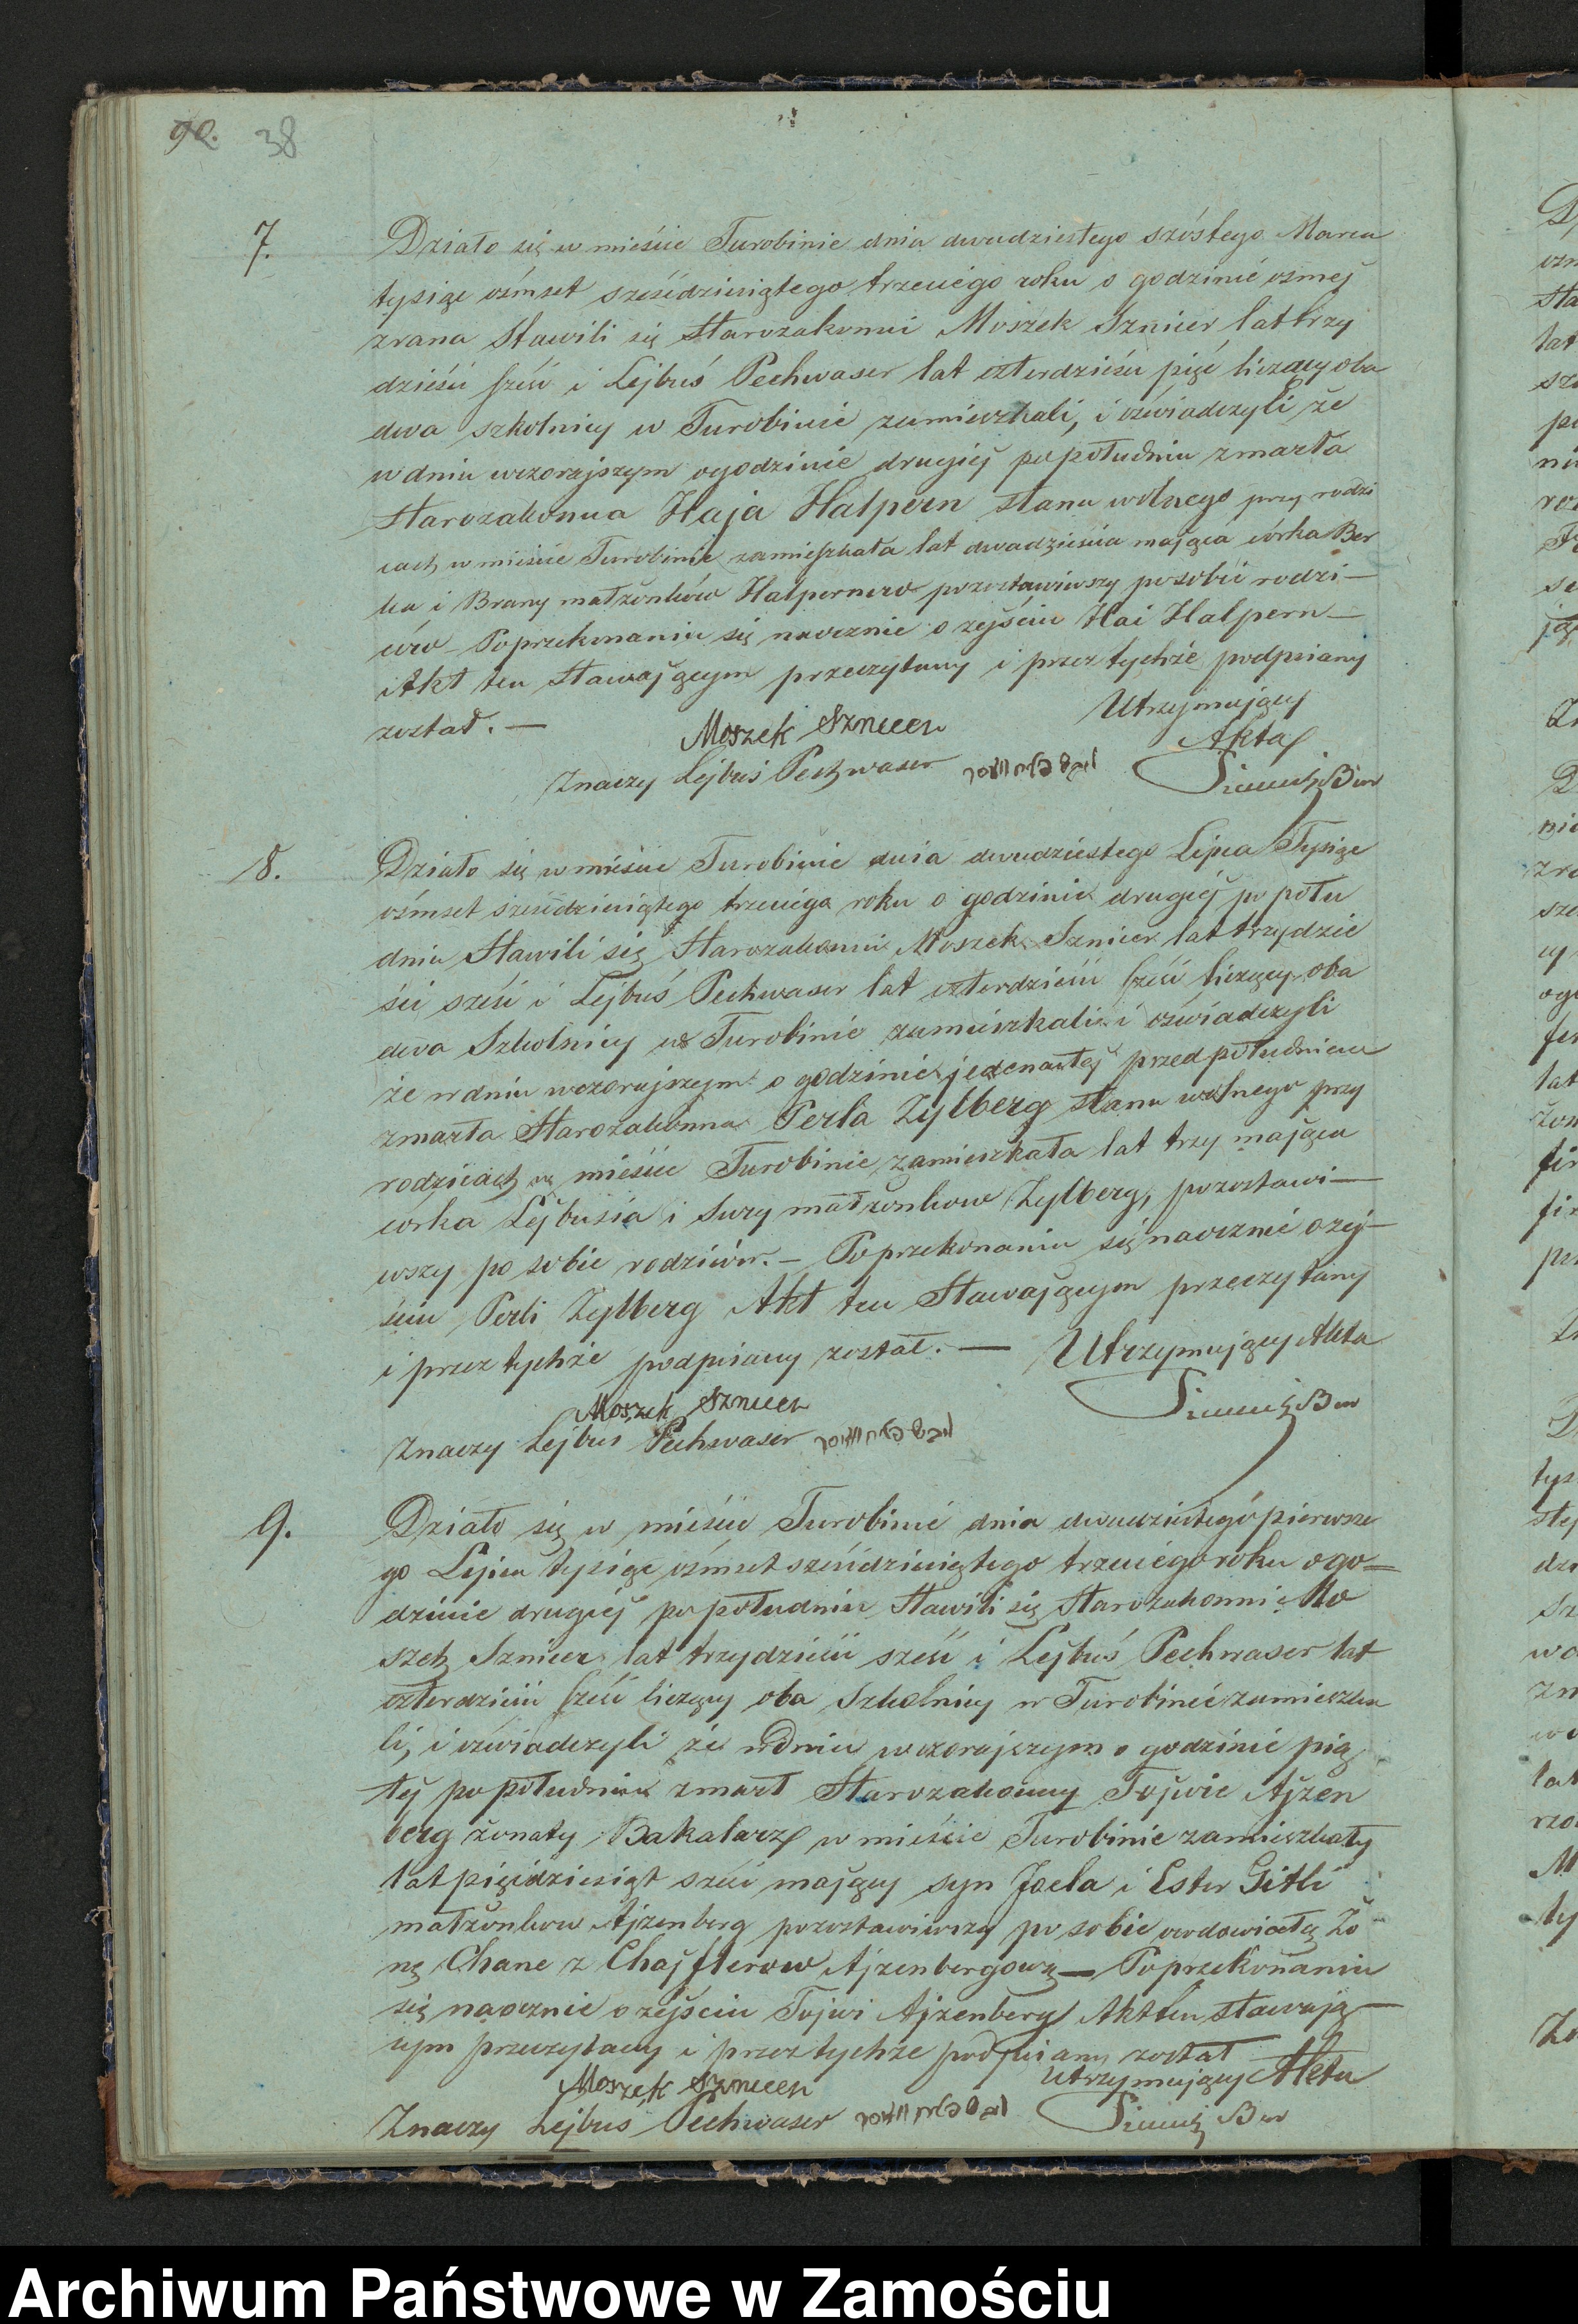 90. 38
7.
Działo się w mieście Turobinie dnia dwudziestego szóstego Marca
tysiąc ośmset sześćdziesiątego trzeciego roku o godzinie ósmej
zrana Stawili się Starozakonni Moszek Sznicer lat trzy
dzieści sześć i Lejbuś Pechwaser lat czterdzieści pięć liczący oba
dwa szkolnicy w Turobinie zamieszkali, i oświadczyli że
w dniu wczorajszym ogodzinie drugiej popołudniu zmarła
Starozakonna Haja Halpern stanu wolnego przy rodzi
cach w mieście Turobinie zamieszkała lat dwadzieścia mająca córka Ber
ka i Brany małżonków Halpernow pozostawiwszy posobie rodzi—
ców — Poprzekonaniu się naocznie o zejściu Hai Halpern —
Akt ten Stawającym przeczytany i przez tychże podpisany
został. —
Utrzymujący
Moszek Sznicer
Akta
Znaczy Lejbuś Pechwaser
8.
Działo się w mieście Turobinie dnia dwudziestego Lipca Tysiąc
ośmset sześćdziesiątego trzeciego roku o godzinie drugiej po połu
dniu Stawili się Starozakonni Moszek Sznicer lat trzydzie
ści sześć i Lejbuś Pechwaser lat czterdzieści sześć liczący oba
dwa Szkolnicy w Turobinie zamieszkali i oświadczyli
że wdniu wczorajszym o godzinie jedenastej przed południem
zmarła Starozakonna Perla Zylberg stanu wolnego przy
rodzicach w mieście Turobinie zamieszkała lat trzy mająca
córka Lejbusia i Sury małżonkow Zylberg, pozostawi—
wszy po sobie rodziców. — Poprzekonaniu się naocznie o zej—
ściu Perli Zylberg Akt ten Stawającym przeczytany
i przez tychże podpisany został. — Utrzymujący Akta
Moszek Sznicer
Znaczy Lejbuś Pechwaser
9.
Działo się w mieście Turobinie dnia dwudziestego pierwsze
go Lipca tysiąc ośmset sześćdziesiątego trzeciego roku ogo=
dzinie drugiej po południu Stawili się Starozakonni Mo
szek Sznicer lat trzydzieści sześć i Lejbuś Pechwaser lat
czterdzieści sześć liczący oba Szkolnicy w Turobinie zamieszka
li, i oświadczyli że wdniu wczorajszym o godzinie pią
tej popołudniu zmarł Starozakonny Tojwie Ajzen
berg żonaty Bakalarz w mieście Turobinie zamieszkały
lat pięćdziesiąt sześć mający syn Joela i Ester Gitli
małżonkow Ajzenberg pozostawiwszy po sobie owdowiałą Żo
nę Chane z Chajfterow Ajzenbergową — Poprzekonaniu
się naocznie o zejściu Tojwi Ajzenberg Akt ten stawają—
cym przeczytany i przez tychże podpisany został
Moszek Sznicer
Utrzymujący Akta
Znaczy Lejbuś Pechwaser
Archiwum Państwowe w Zamościu